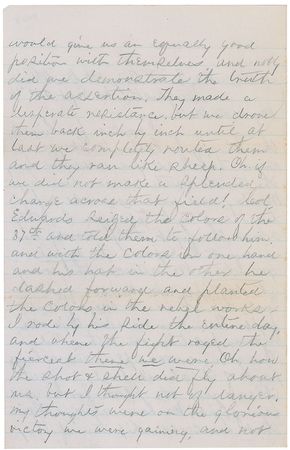 would give us an equally good
position with themselves, and nobly
did we demonstrate the truth
of the assertion. They made a
desperate resistance, but we drove
them back inch by inch until at
last we completely routed them
and they ran like sheep. Oh if
we did not make a splendid
charge across that field! Col
Edwards seized the colors of the
37th and told them to follow him,
and with the colors in one hand
and his hat in the other he
dashed forward and planted
the colors in the rebel works -
I rode by his side the entire day,
and where the fight raged the
fiercest there we were. Oh how
the shot & shell did fly about
me, but I thought not of danger,
my thoughts were on the glorious
victory we were gaining, and not